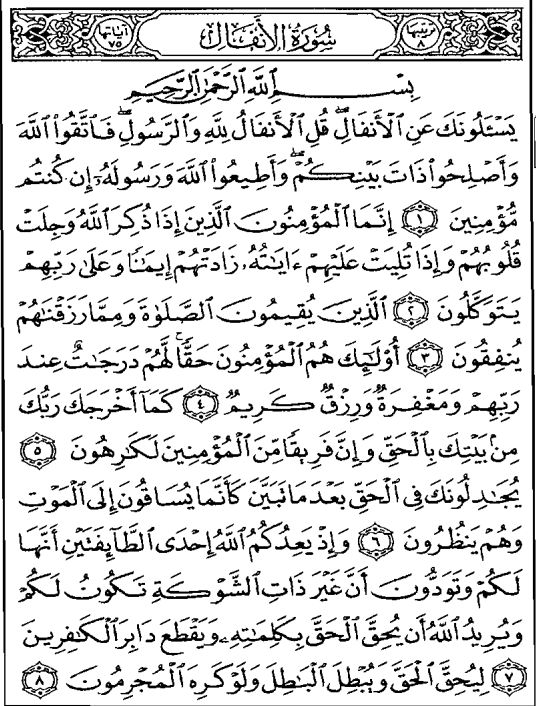 ترتيبها ٨ سُورَةُ الأَنفَالِ آياتها ٧٥
بِسْمِ ٱللَّهِ ٱلرَّحْمَٰنِ ٱلرَّحِيمِ
يَسْـَٔلُونَكَ عَنِ ٱلْأَنفَالِ ۖ قُلِ ٱلْأَنفَالُ لِلَّهِ وَٱلرَّسُولِ ۖ فَٱتَّقُوا۟ ٱللَّهَ
وَأَصْلِحُوا۟ ذَاتَ بَيْنِكُمْ ۖ وَأَطِيعُوا۟ ٱللَّهَ وَرَسُولَهُۥٓ إِن كُنتُم
مُّؤْمِنِينَ ١ إِنَّمَا ٱلْمُؤْمِنُونَ ٱلَّذِينَ إِذَا ذُكِرَ ٱللَّهُ وَجِلَتْ
قُلُوبُهُمْ وَإِذَا تُلِيَتْ عَلَيْهِمْ ءَايَٰتُهُۥ زَادَتْهُمْ إِيمَٰنًا وَعَلَىٰ رَبِّهِمْ
يَتَوَكَّلُونَ ٢ ٱلَّذِينَ يُقِيمُونَ ٱلصَّلَوٰةَ وَمِمَّا رَزَقْنَٰهُمْ
يُنفِقُونَ ٣ أُو۟لَٰٓئِكَ هُمُ ٱلْمُؤْمِنُونَ حَقًّا ۚ لَّهُمْ دَرَجَٰتٌ عِندَ
رَبِّهِمْ وَمَغْفِرَةٌ وَرِزْقٌ كَرِيمٌ ٤ كَمَآ أَخْرَجَكَ رَبُّكَ
مِنۢ بَيْتِكَ بِٱلْحَقِّ وَإِنَّ فَرِيقًا مِّنَ ٱلْمُؤْمِنِينَ لَكَٰرِهُونَ ٥
يُجَٰدِلُونَكَ فِى ٱلْحَقِّ بَعْدَ مَا تَبَيَّنَ كَأَنَّمَا يُسَاقُونَ إِلَى ٱلْمَوْتِ
وَهُمْ يَنظُرُونَ ٦ وَإِذْ يَعِدُكُمُ ٱللَّهُ إِحْدَى ٱلطَّآئِفَتَيْنِ أَنَّهَا
لَكُمْ وَتَوَدُّونَ أَنَّ غَيْرَ ذَاتِ ٱلشَّوْكَةِ تَكُونُ لَكُمْ
وَيُرِيدُ ٱللَّهُ أَن يُحِقَّ ٱلْحَقَّ بِكَلِمَٰتِهِۦ وَيَقْطَعَ دَابِرَ ٱلْكَٰفِرِينَ
٧ لِيُحِقَّ ٱلْحَقَّ وَيُبْطِلَ ٱلْبَٰطِلَ وَلَوْ كَرِهَ ٱلْمُجْرِمُونَ ٨